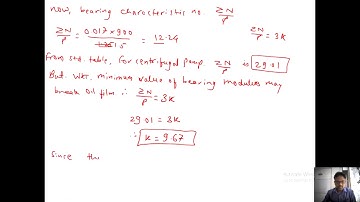 now, bearing characteristic no. ZN/P
ZN/P = 0.017×900/1.25 = 12.24
ZN/P = 3K
from std. table, for centrifugal pump ZN/P to 29.01
But. WKr. minimum value of bearing modulus may
break oil film ∴ ZN/P = 3K
29.01 = 3K
∴ K = 9.67
Since the